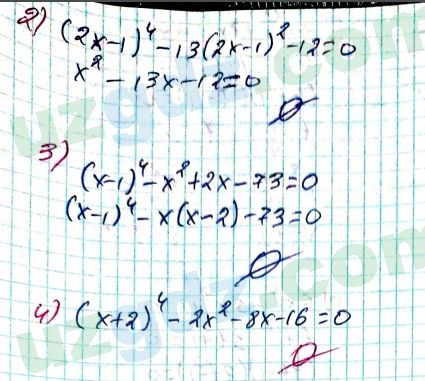 2) (2x-1)⁴ - 13(2x-1)² - 12 = 0
x² - 13x - 12 = 0
∅
3) (x-1)⁴ - x² + 2x - 73 = 0
(x-1)⁴ - x(x-2) - 73 = 0
∅
4) (x+2)⁴ - 2x² - 8x - 16 = 0
∅